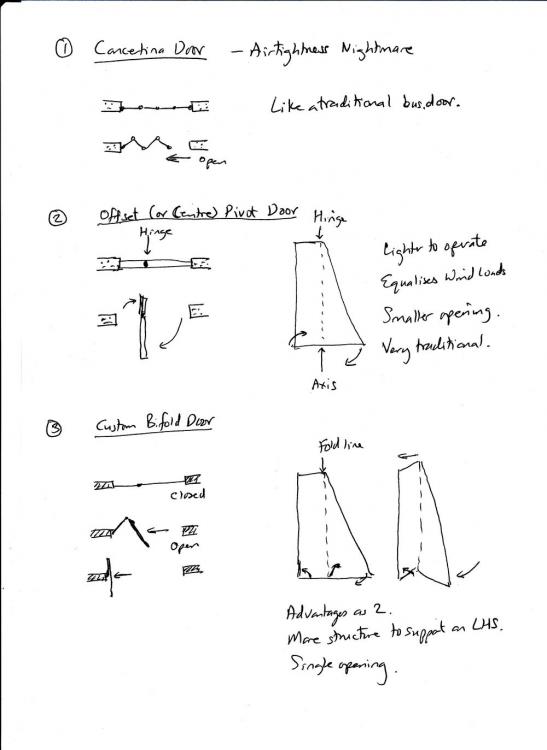 ① Concertina Door – Airtightness Nightmare
Like a traditional bus door.
Open
② Offset (or Centre) Pivot Door
Hinge
Hinge
Lighter to operate
Equalises Wind Loads
Smaller opening.
Very traditional.
Axis
③ Custom Bifold Door
Fold line
Closed
Open
Advantages as 2.
More structure to support on LHS.
Single opening.